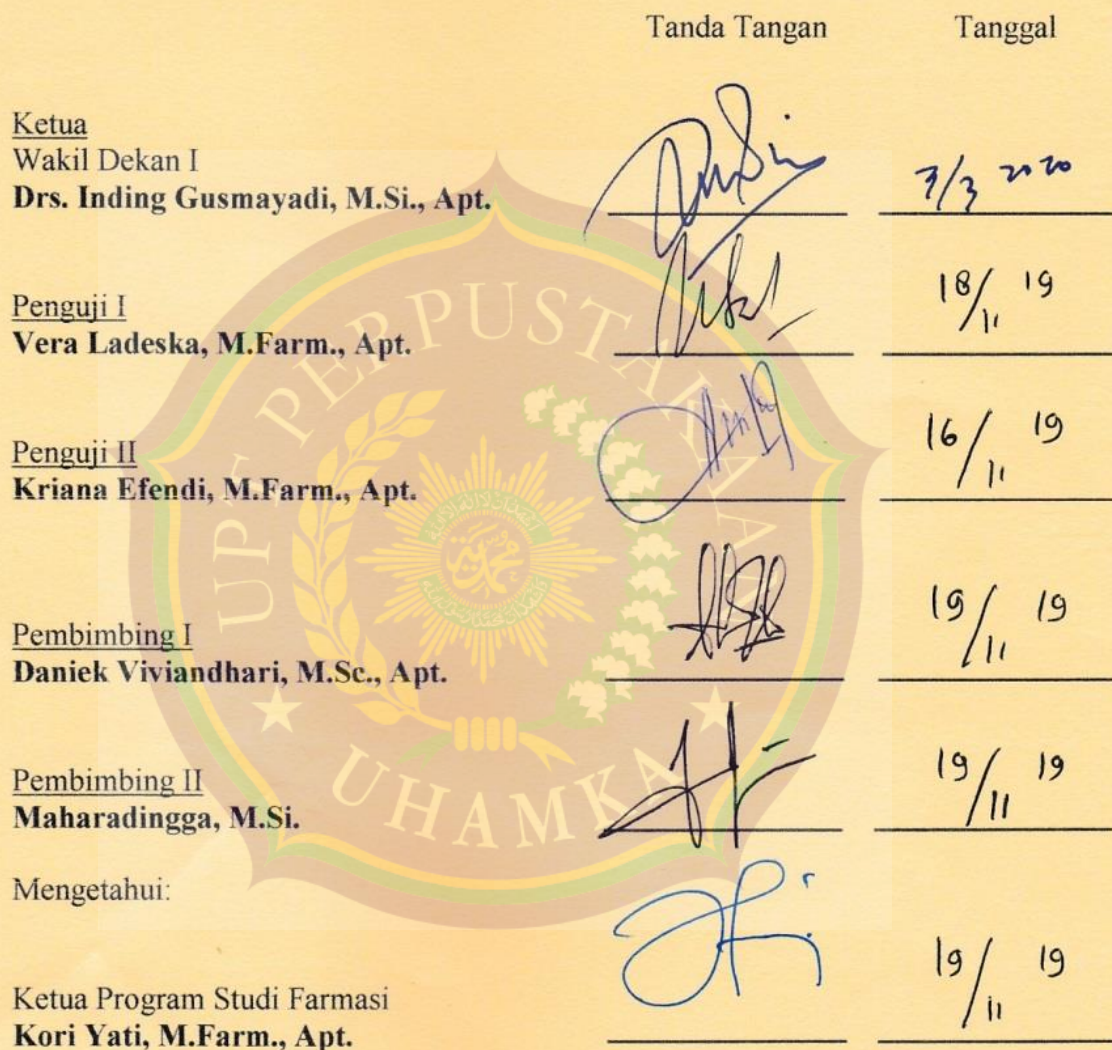 Tanda Tangan Tanggal
Ketua
Wakil Dekan I
Drs. Inding Gusmayadi, M.Si., Apt.
3/3 2020
Penguji I
Vera Ladeska, M.Farm., Apt.
18/11 19
Penguji II
Kriana Efendi, M.Farm., Apt.
16/11 19
Pembimbing I
Daniek Viviandhari, M.Sc., Apt.
19/11 19
Pembimbing II
Maharadingga, M.Si.
19/11 19
Mengetahui:
Ketua Program Studi Farmasi
Kori Yati, M.Farm., Apt.
19/11 19
UPT PERPUSTAKAAN
UHAMKA